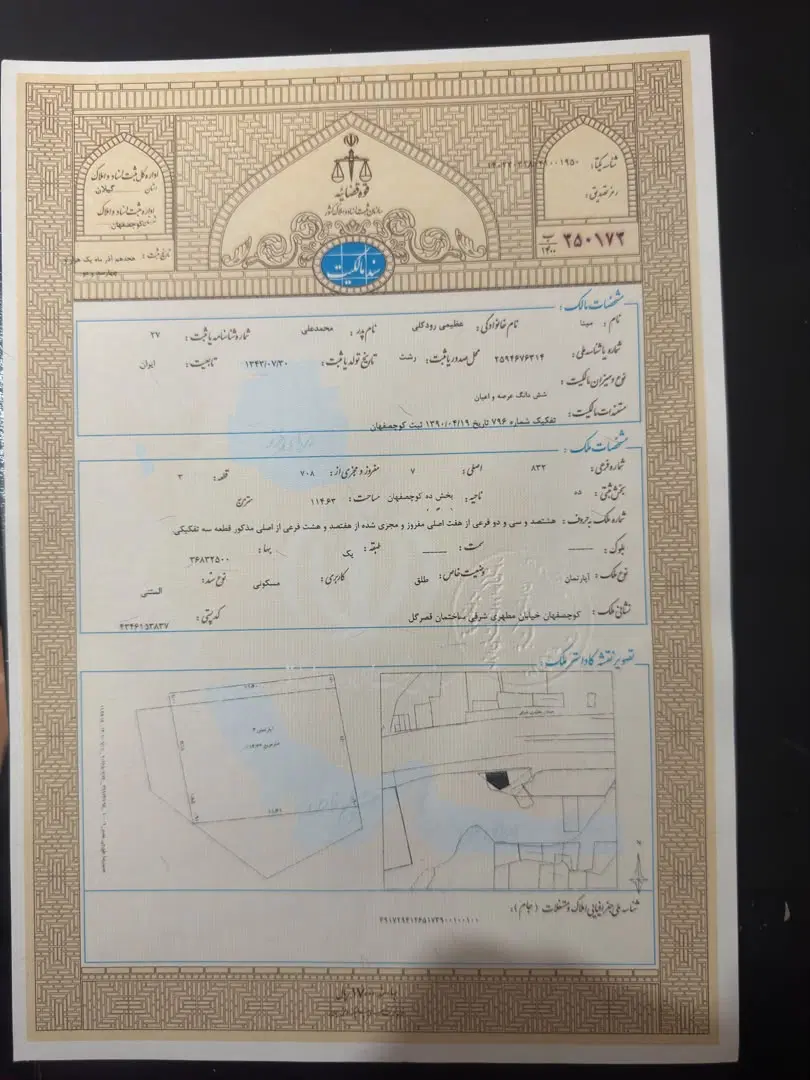 اداره کل ثبت اسناد و املاک
استان گیلان
اداره ثبت اسناد و املاک
کوچصفهان
تاریخ ثبت : هجدهم آذر ماه یک هزار و
چهارصد و دو
قوه قضائیه
سازمان ثبت اسناد و املاک کشور
سند مالکیت
شناسه یکتا:
رمز تصدیق:
ب
۱۴۰۰
۲۵۰۱۷۲
مشخصات مالک :
نام : مینا نام خانوادگی : عظیمی رودکلی نام پدر : محمدعلی شماره شناسنامه یا ثبت : ۲۷
شماره یا شناسه ملی : ۲۵۹۴۶۷۶۳۱۴ محل صدور یا ثبت : رشت تاریخ تولد یا ثبت : ۱۳۴۳/۰۷/۳۰ تابعیت : ایران
نوع و میزان مالکیت : شش دانگ عرصه و اعیان
مستندات مالکیت : تفکیک شماره ۷۹۶ تاریخ ۱۳۹۰/۰۴/۱۹ ثبت کوچصفهان
مشخصات ملک :
شماره فرعی : ۸۳۲ اصلی : ۷ مفروز و مجزی از : ۷۰۸ قطعه : ۳
بخش ثبتی : ده ناحیه : بخش ده کوچصفهان مساحت : ۱۱۴.۶۳ مترمربع
شماره ملک به حروف : هشتصد و سی و دو فرعی از هفت اصلی مفروز و مجزی شده از هفتصد و هشت فرعی از اصلی مذکور قطعه سه تفکیکی.
بلوک : ــــــ سمت : ــــــ طبقه : یک بها : ۳۶۸۳۲۵۰۰
نوع ملک : آپارتمان وضعیت خاص : طلق کاربری : مسکونی نوع سند : المثنی
نشانی ملک : کوچصفهان خیابان مطهری شرقی ساختمان قصرگل کدپستی : ۴۳۴۶۱۵۳۸۳۷
تصویر نقشه کاداستر ملک :
آپارتمان ۳
شناسه ملی جغرافیایی املاک و مستغلات (جام) :